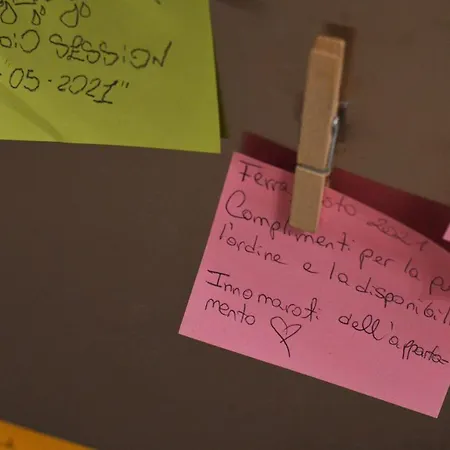 DIO SESSION
05-2021"
Ferragosto 2021
Complimenti per la pu
l'ordine e la disponibili
Innomarati dell'apparta-
mento